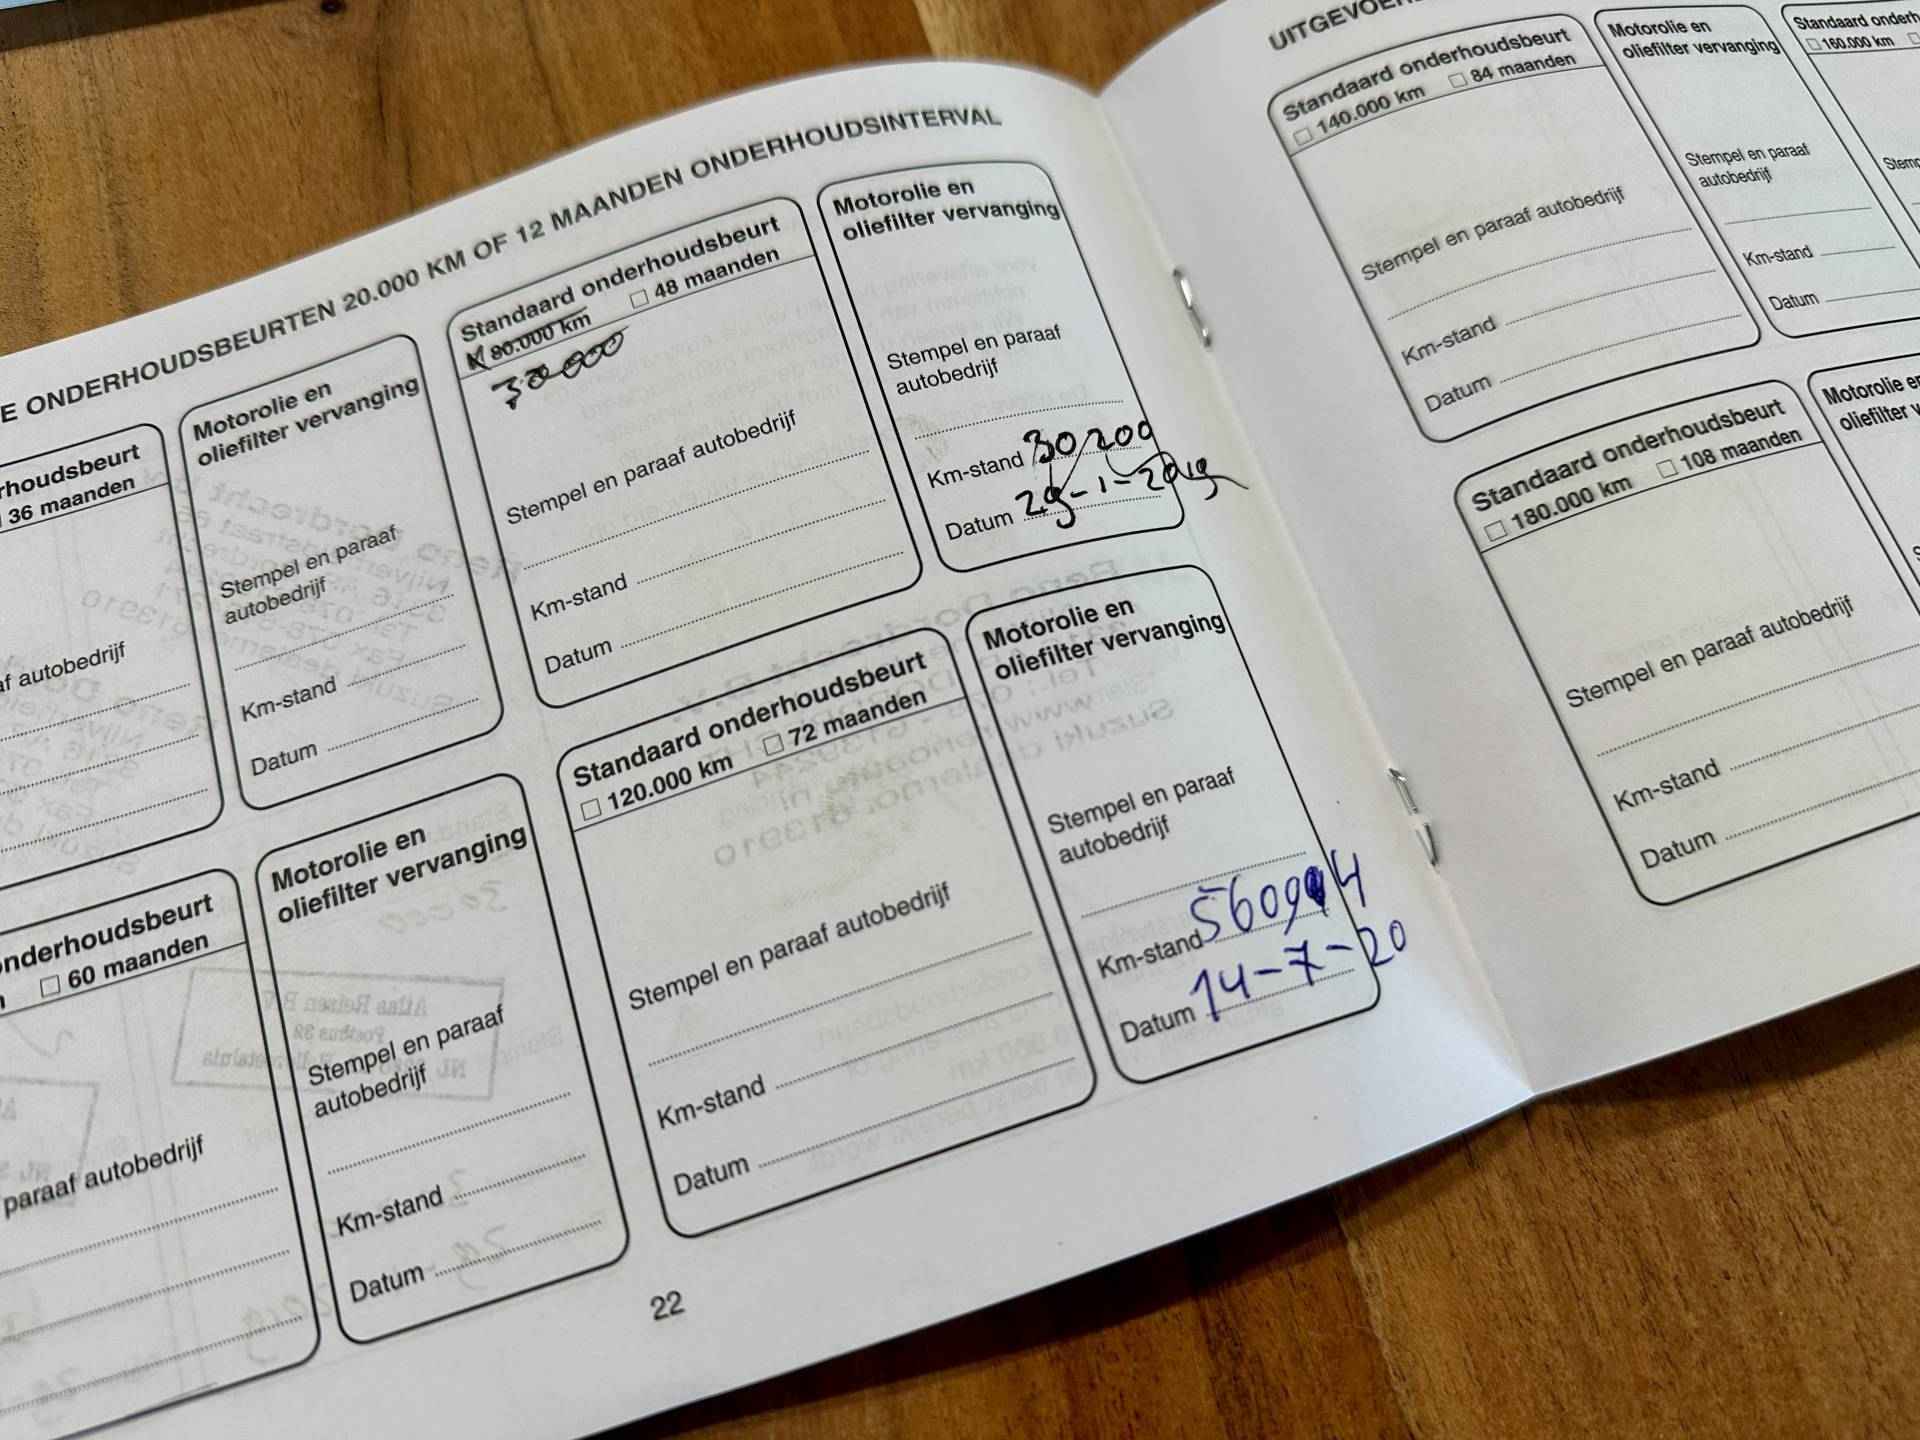 E ONDERHOUDSBEURTEN 20.000 KM OF 12 MAANDEN ONDERHOUDSINTERVAL
rhoudsbeurt
36 maanden
autobedrijf
Motorolie en
oliefilter vervanging
Stempel en paraaf
autobedrijf
Km-stand
Datum
Standaard onderhoudsbeurt
80.000 km 48 maanden
30000
Stempel en paraaf autobedrijf
Km-stand
Datum
Motorolie en
oliefilter vervanging
Stempel en paraaf
autobedrijf
Km-stand 30200
Datum 29-1-2019
nderhoudsbeurt
60 maanden
paraaf autobedrijf
Motorolie en
oliefilter vervanging
Stempel en paraaf
autobedrijf
Km-stand
Datum
Standaard onderhoudsbeurt
120.000 km 72 maanden
Stempel en paraaf autobedrijf
Km-stand
Datum
Motorolie en
oliefilter vervanging
Stempel en paraaf
autobedrijf
Km-stand
Datum 14-7-20
22
UITGEVOER
Standaard onderhoudsbeurt
140.000 km 84 maanden
Stempel en paraaf autobedrijf
Km-stand
Datum
Motorolie en
oliefilter vervanging
Stempel en paraaf
autobedrijf
Km-stand
Datum
Standaard onderh
160.000 km
Stemp
Standaard onderhoudsbeurt
180.000 km 108 maanden
Stempel en paraaf autobedrijf
Km-stand
Datum
Motorolie en
oliefilter v